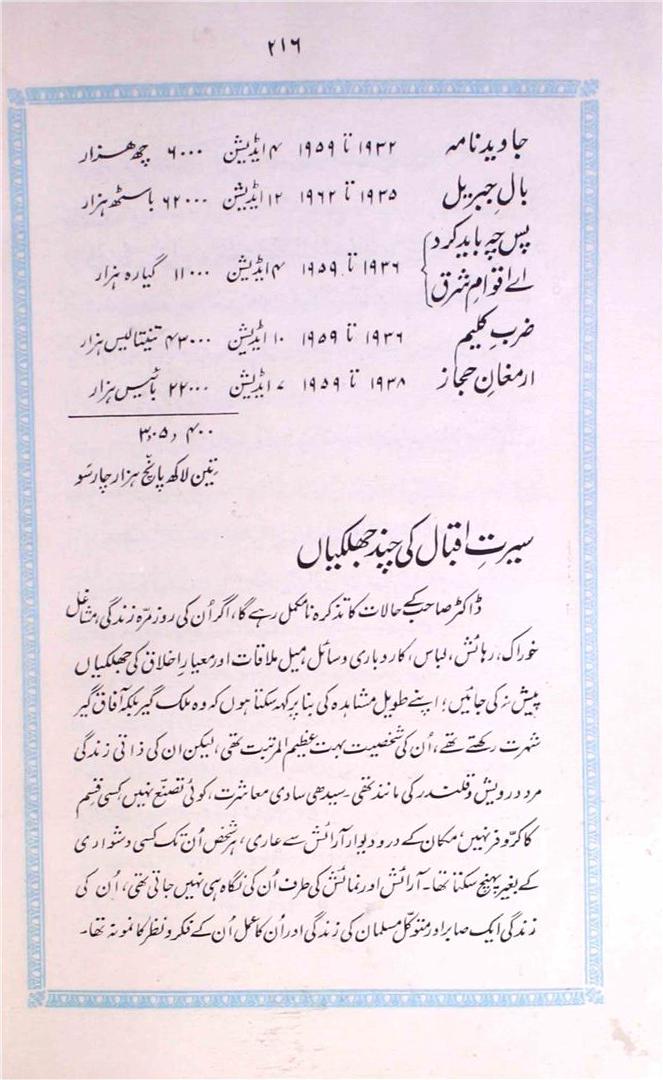 ۲۱۶
جاوید نامہ ۱۹۳۲ تا ۱۹۵۹ ۴ ایڈیشن ۶۰۰۰ چھ ہزار
بالِ جبریل ۱۹۳۵ تا ۱۹۶۲ ۱۲ ایڈیشن ۶۲۰۰۰ باسٹھ ہزار
پس چہ باید کرد
اے اقوامِ شرق ۱۹۳۶ تا ۱۹۵۹ ۴ ایڈیشن ۱۱۰۰۰ گیارہ ہزار
ضربِ کلیم ۱۹۳۶ تا ۱۹۵۹ ۱۰ ایڈیشن ۴۳۰۰۰ تنیتالیس ہزار
ارمغانِ حجاز ۱۹۳۸ تا ۱۹۵۹ ۷ ایڈیشن ۲۲۰۰۰ بائیس ہزار
۳،۰۵،۴۰۰
تین لاکھ پانچ ہزار چار سَو
سیرتِ اقبال کی چند جھلکیاں
ڈاکٹر صاحب کے حالات کا تذکرہ نامکمل رہے گا، اگر اُن کی روز مرّہ زندگی، مشاغل
خوراک، رہائش، لباس، کاروباری وسائل، میل ملاقات اور معیارِ اخلاق کی جھلکیاں
پیش نہ کی جائیں؛ اپنے طویل مشاہدہ کی بنا پر کہہ سکتا ہوں کہ وہ ملک گیر بلکہ آفاق گیر
شہرت رکھتے تھے، اُن کی شخصیت بہت عظیم المرتبت تھی، لیکن ان کی ذاتی زندگی
مردِ درویش و قلندر کی مانند تھی۔ سیدھی سادی معاشرت، کوئی تصنّع نہیں، کسی قسم
کا کرّوفر نہیں، مکان کے در و دیوار آرائش سے عاری، ہر شخص اُن تک کسی دشواری
کے بغیر پہنچ سکتا تھا۔ آرائش اور نمائش کی طرف اُن کی نگاہ ہی نہیں جاتی تھی، اُن کی
زندگی ایک صابر اور متوکّل مسلمان کی زندگی اور اُن کا عمل اُن کے فکر و نظر کا نمونہ تھا۔